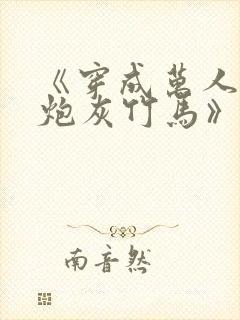 《穿成万人
炮灰竹马》
南音然